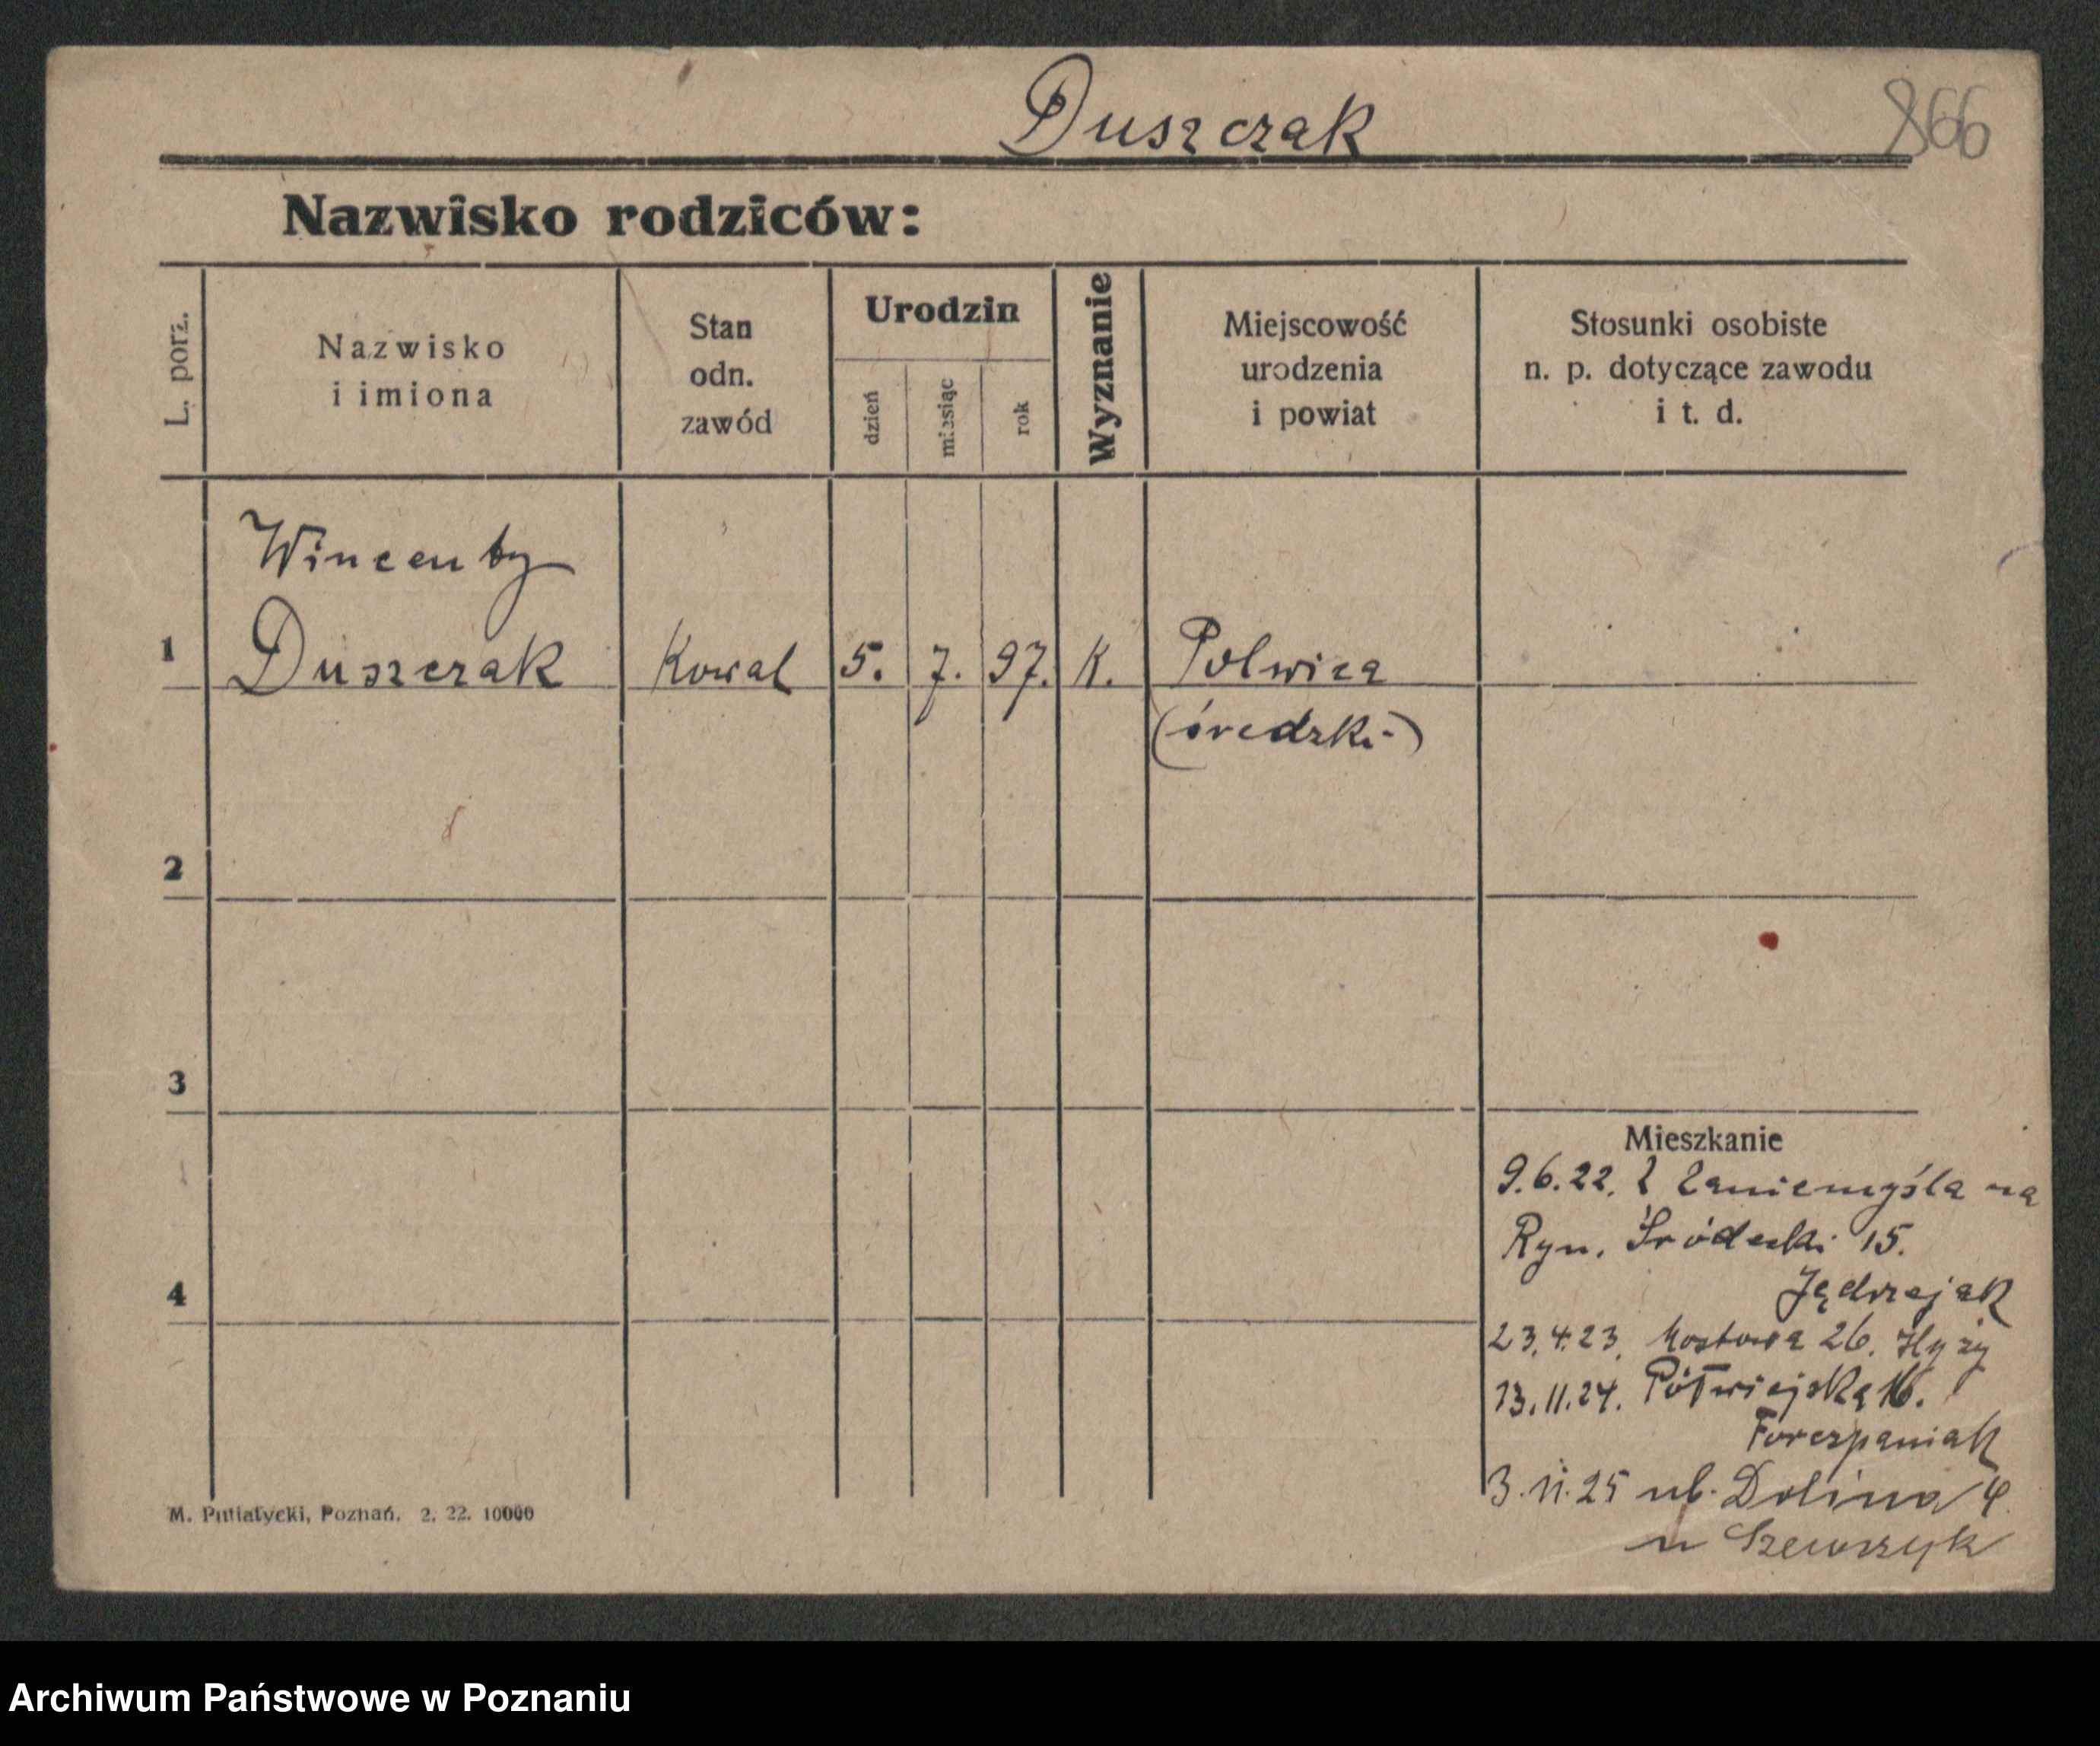 Duszczak
866
Nazwisko rodziców:
L. porz.
Nazwisko
i imiona
Stan
odn.
zawód
Urodzin
dzień
miesiąc
rok
Wyznanie
Miejscowość
urodzenia
i powiat
Stosunki osobiste
n. p. dotyczące zawodu
i t. d.
Wincenty
1 Duszczak Kowal 5. 7. 97. K. Polwica
(średzki)
2
3
Mieszkanie
9.6.22. Z Zaniemyśla na
Ryn. Śródecki 15.
Jędrzejak
4
23.4.23. Mostowa 26. Hyży
13.11.24. Półwiejska 16.
3.11.25 ul. Dolina 4
u Szewczyk
M. Putiatycki, Poznań. 2. 22. 10000
Archiwum Państwowe w Poznaniu